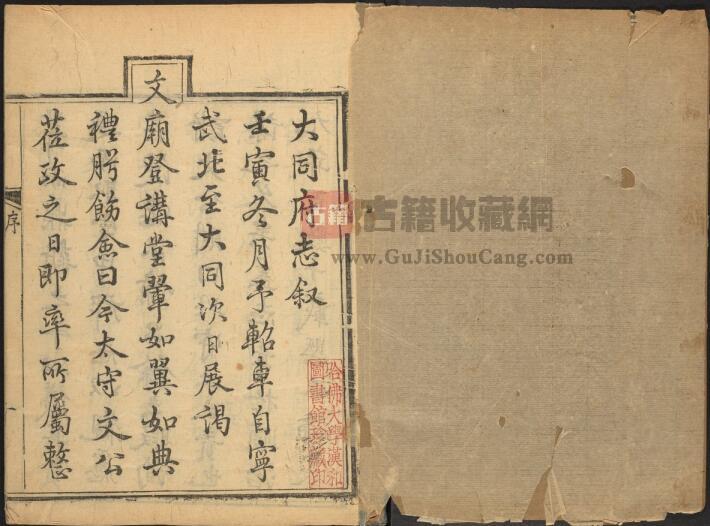 大同府志叙
壬寅冬月予軺車自寧
武北至大同次日展謁
文廟登講堂翬如翼如典
禮腭飭僉曰今太守文公
莅政之日即率所屬整
序
一
古籍
古籍收藏網
www.GuJiShouCang.com
哈佛大學漢和
圖書館珍藏印